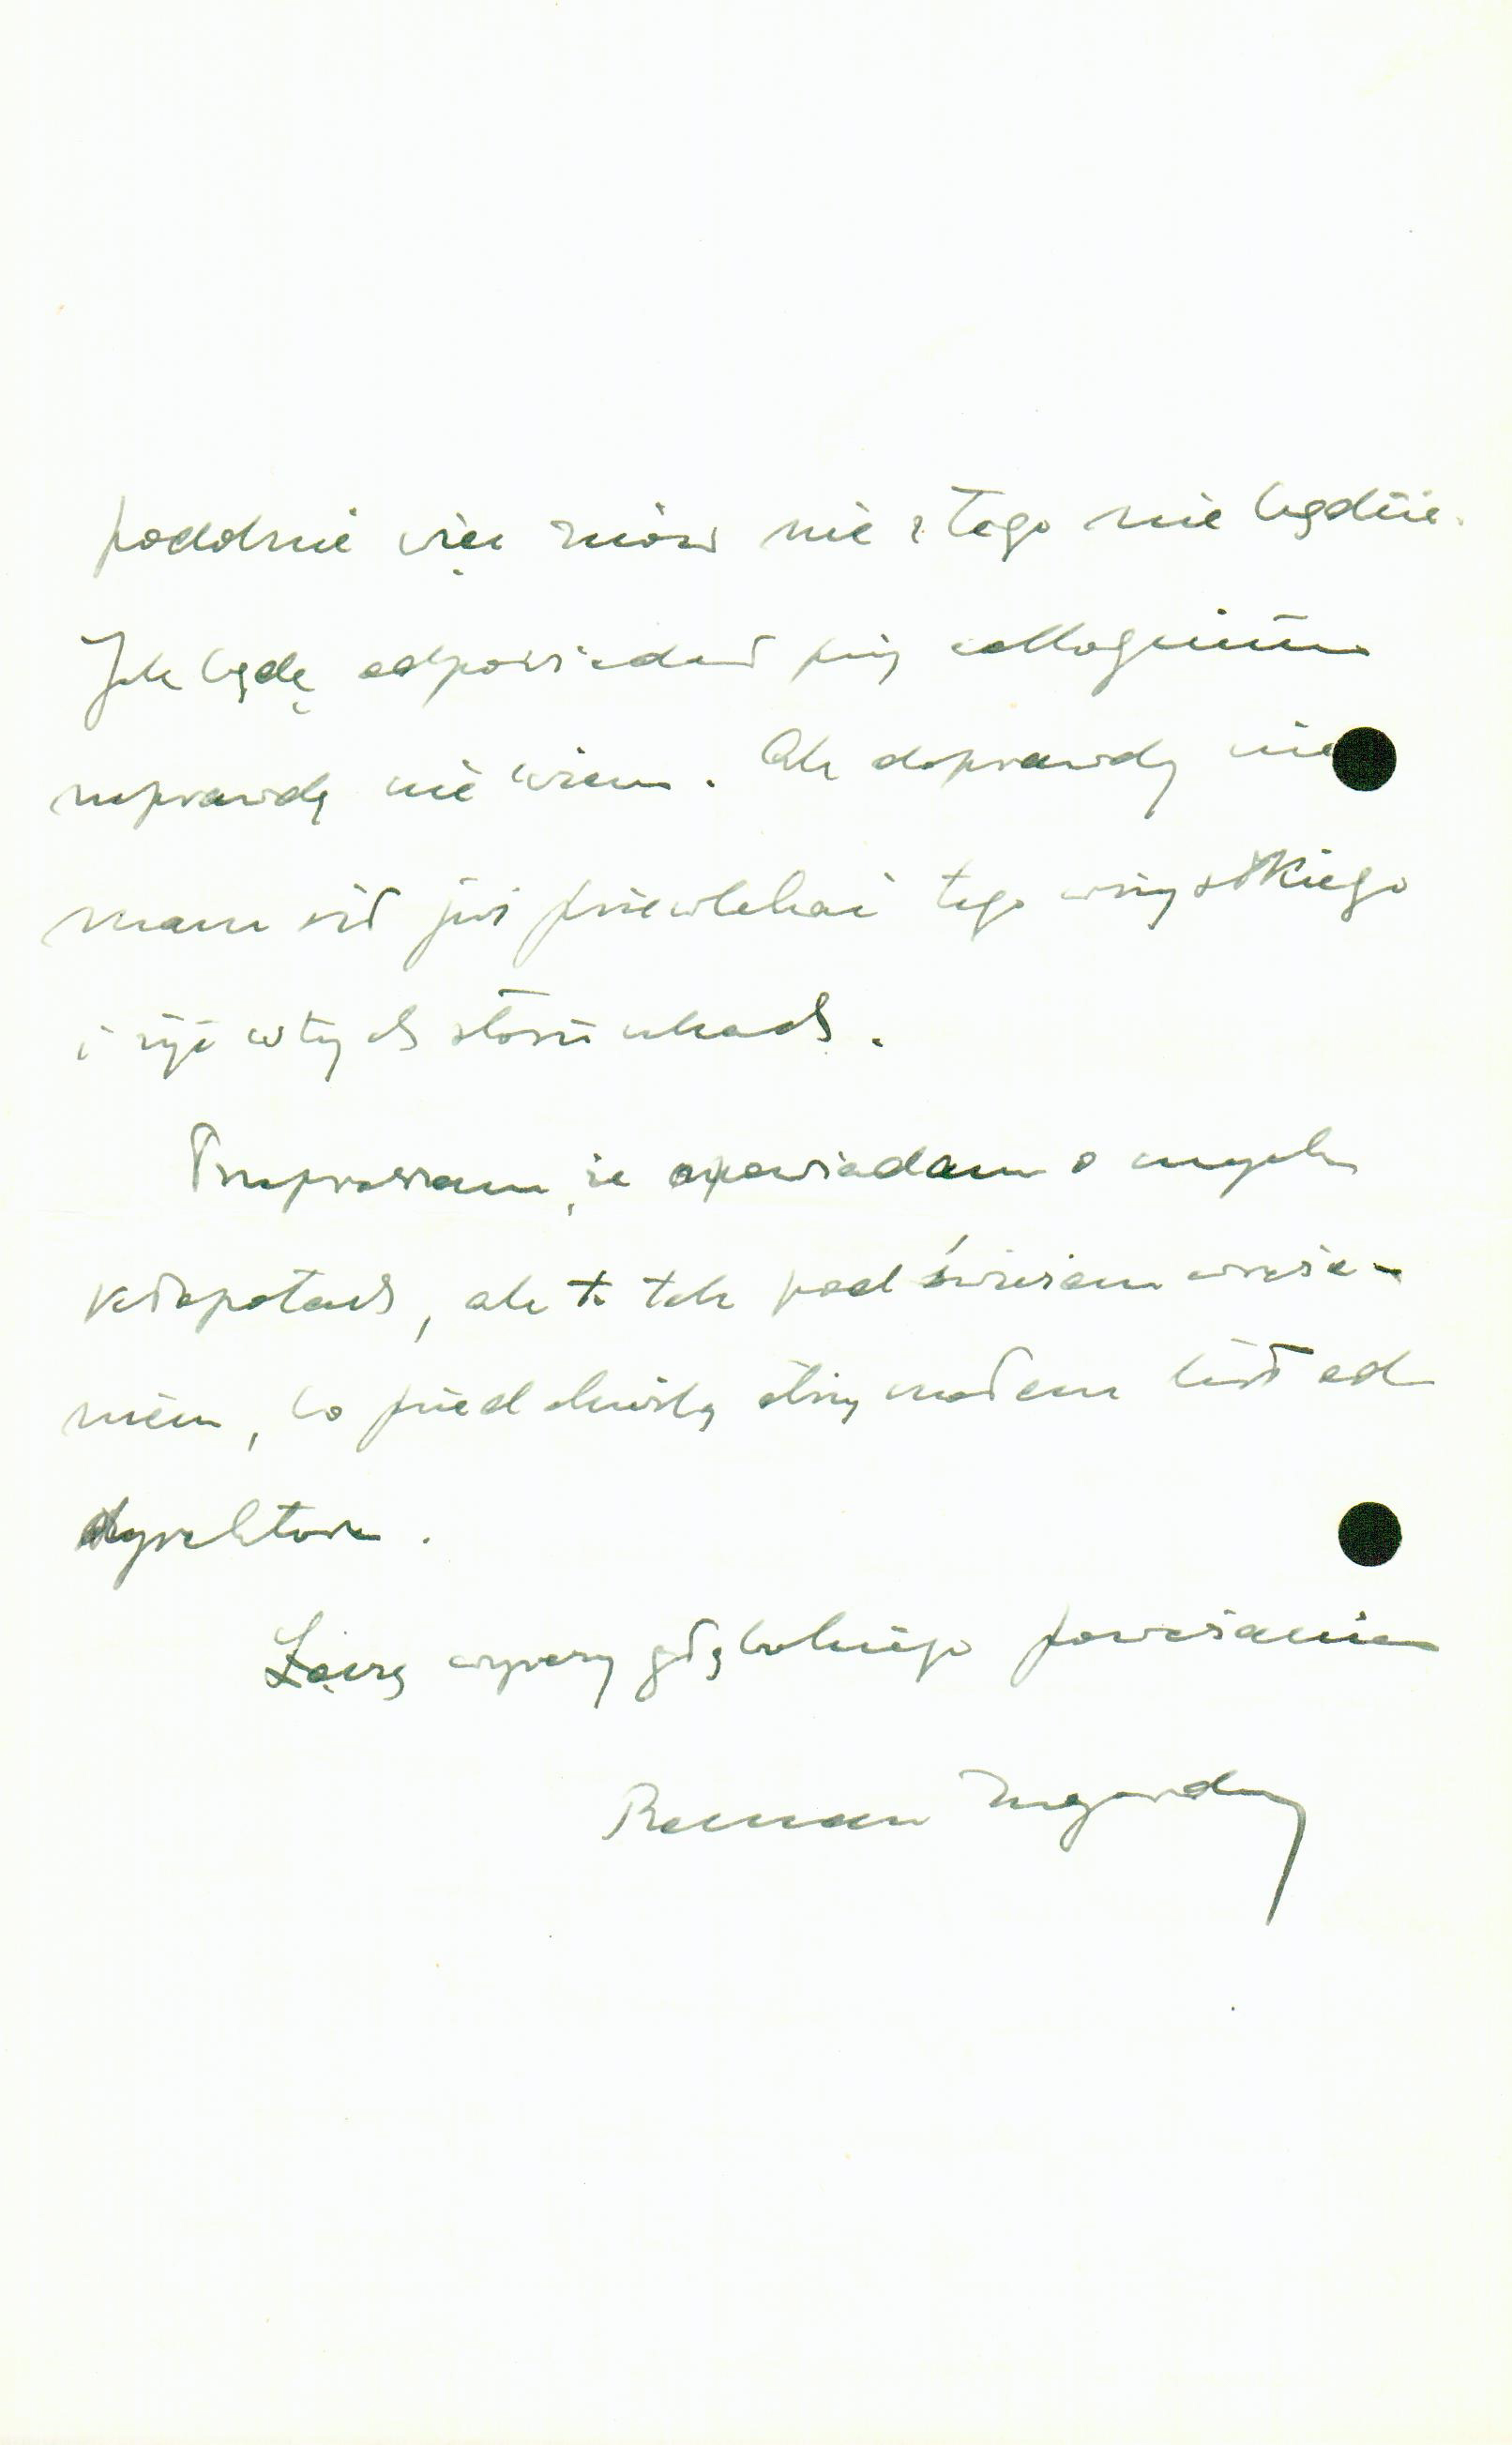 podobnie więc znów nic z tego nie będzie.
Jak będę odpowiadał przy colloquium
naprawdę nie wiem. Ale doprawdy nie
mam sił już przewlekać tego wszystkiego
i żyć w tych stosunkach.
Przepraszam, że opowiadam o mych
kłopotach, ale to tak pod świeżem wraże-
niem, bo przed chwilą otrzymałem list od
dyrektora.
Łączę wyrazy głębokiego poważania
Roman Ingarden